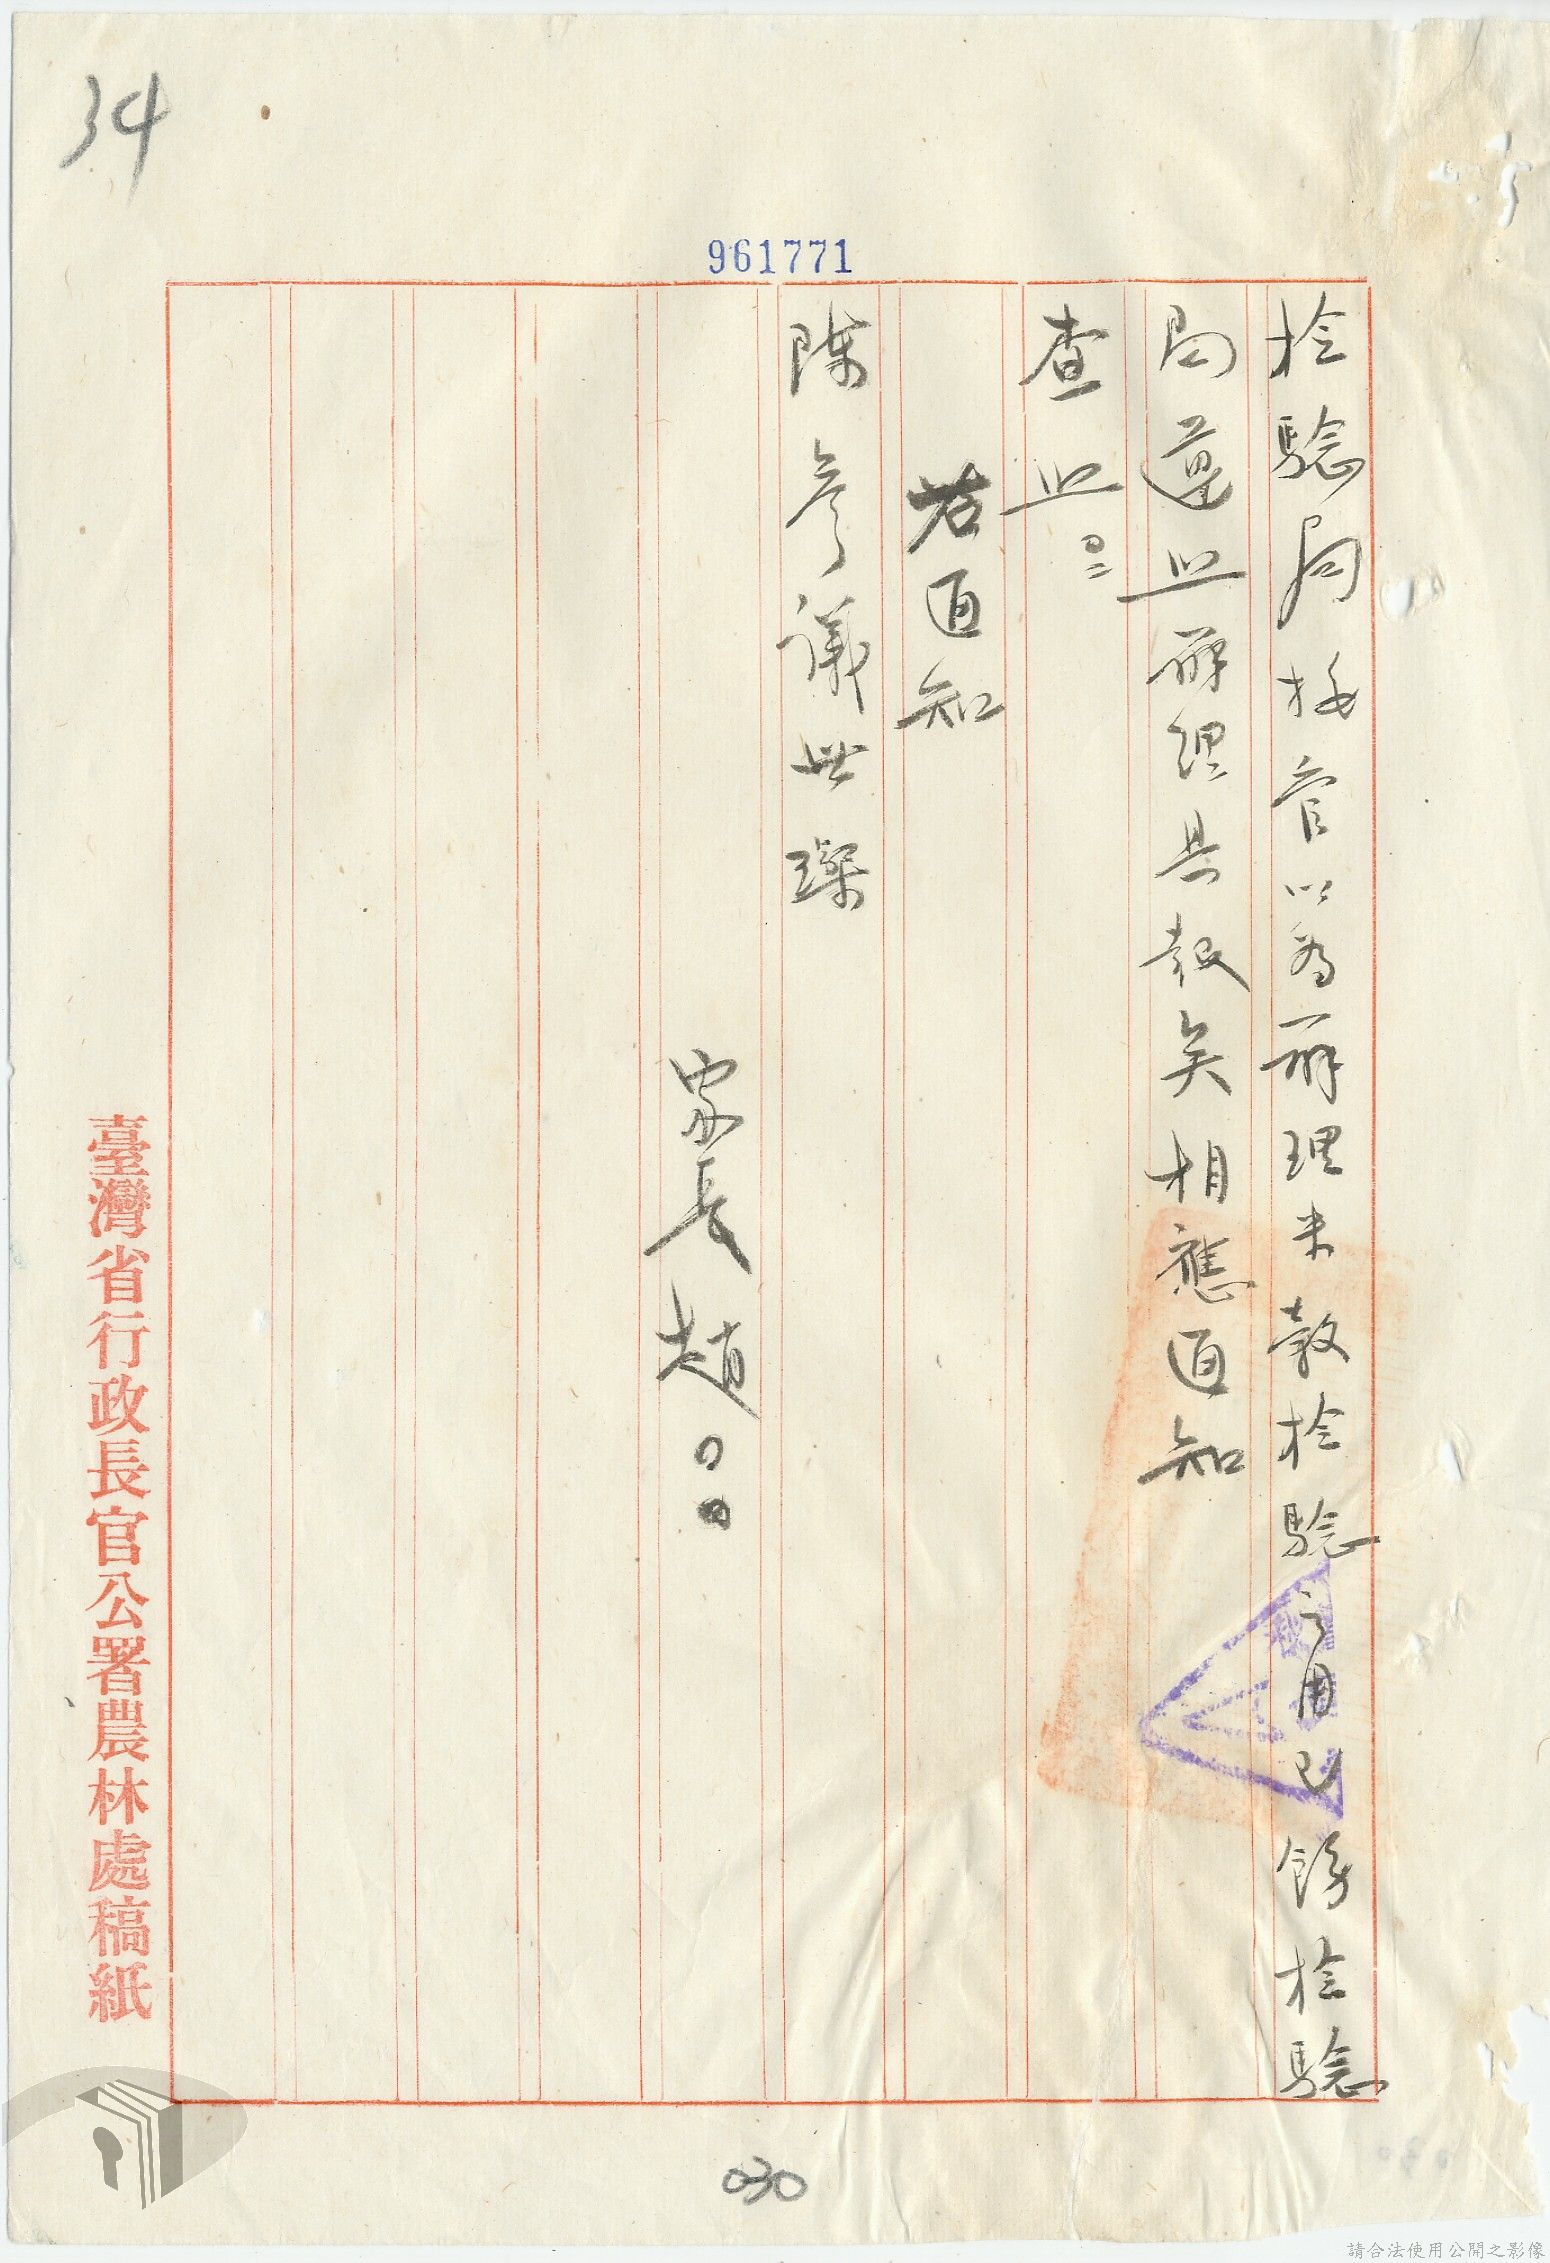 34
961771
檢驗局接管以為辦理米穀檢驗之用已飭檢驗
局遵照辦理具報矣相應通知
查照
右通知
陳參議世璨
處長趙○○
臺灣省行政長官公署農林處稿紙
030
請合法使用公開之影像